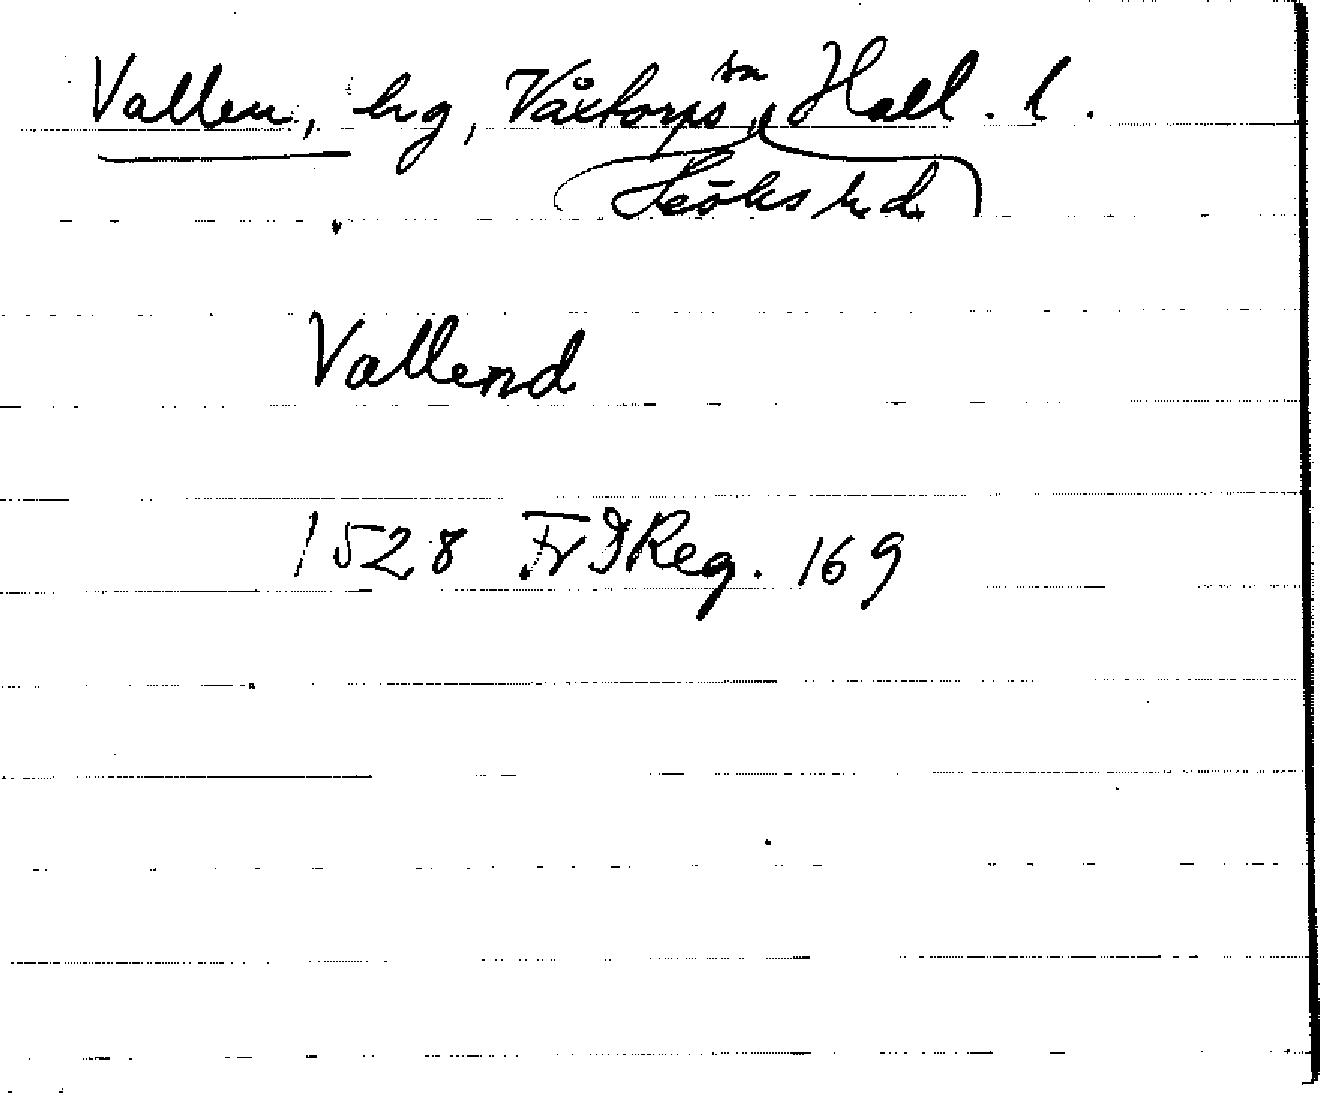 Vallen, hg, Våxtorps sn, Hall. l.
Höks hd
Vallend
1528 Fr I Reg. 169